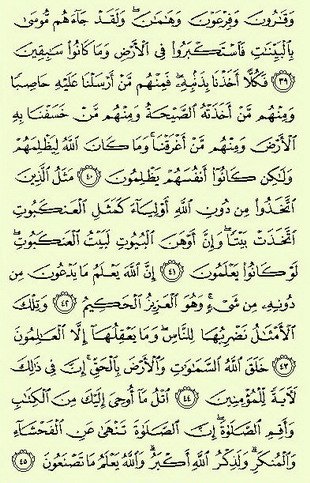 وَقَٰرُونَ وَفِرْعَوْنَ وَهَٰمَٰنَ ۖ وَلَقَدْ جَآءَهُم مُّوسَىٰ
بِٱلْبَيِّنَٰتِ فَٱسْتَكْبَرُوا۟ فِى ٱلْأَرْضِ وَمَا كَانُوا۟ سَٰبِقِينَ
﴿٣٩﴾ فَكُلًّا أَخَذْنَا بِذَنۢبِهِۦ ۖ فَمِنْهُم مَّنْ أَرْسَلْنَا عَلَيْهِ حَاصِبًا
وَمِنْهُم مَّنْ أَخَذَتْهُ ٱلصَّيْحَةُ وَمِنْهُم مَّنْ خَسَفْنَا بِهِ
ٱلْأَرْضَ وَمِنْهُم مَّنْ أَغْرَقْنَا ۚ وَمَا كَانَ ٱللَّهُ لِيَظْلِمَهُمْ
وَلَٰكِن كَانُوٓا۟ أَنفُسَهُمْ يَظْلِمُونَ ﴿٤٠﴾ مَثَلُ ٱلَّذِينَ
ٱتَّخَذُوا۟ مِن دُونِ ٱللَّهِ أَوْلِيَآءَ كَمَثَلِ ٱلْعَنكَبُوتِ
ٱتَّخَذَتْ بَيْتًا ۖ وَإِنَّ أَوْهَنَ ٱلْبُيُوتِ لَبَيْتُ ٱلْعَنكَبُوتِ ۖ
لَوْ كَانُوا۟ يَعْلَمُونَ ﴿٤١﴾ إِنَّ ٱللَّهَ يَعْلَمُ مَا يَدْعُونَ مِن
دُونِهِۦ مِن شَىْءٍ ۚ وَهُوَ ٱلْعَزِيزُ ٱلْحَكِيمُ ﴿٤٢﴾ وَتِلْكَ
ٱلْأَمْثَٰلُ نَضْرِبُهَا لِلنَّاسِ ۖ وَمَا يَعْقِلُهَآ إِلَّا ٱلْعَٰلِمُونَ
﴿٤٣﴾ خَلَقَ ٱللَّهُ ٱلسَّمَٰوَٰتِ وَٱلْأَرْضَ بِٱلْحَقِّ ۚ إِنَّ فِى ذَٰلِكَ
لَءَايَةً لِّلْمُؤْمِنِينَ ﴿٤٤﴾ ٱتْلُ مَآ أُوحِىَ إِلَيْكَ مِنَ ٱلْكِتَٰبِ
وَأَقِمِ ٱلصَّلَوٰةَ ۖ إِنَّ ٱلصَّلَوٰةَ تَنْهَىٰ عَنِ ٱلْفَحْشَآءِ
وَٱلْمُنكَرِ ۗ وَلَذِكْرُ ٱللَّهِ أَكْبَرُ ۗ وَٱللَّهُ يَعْلَمُ مَا تَصْنَعُونَ ﴿٤٥﴾